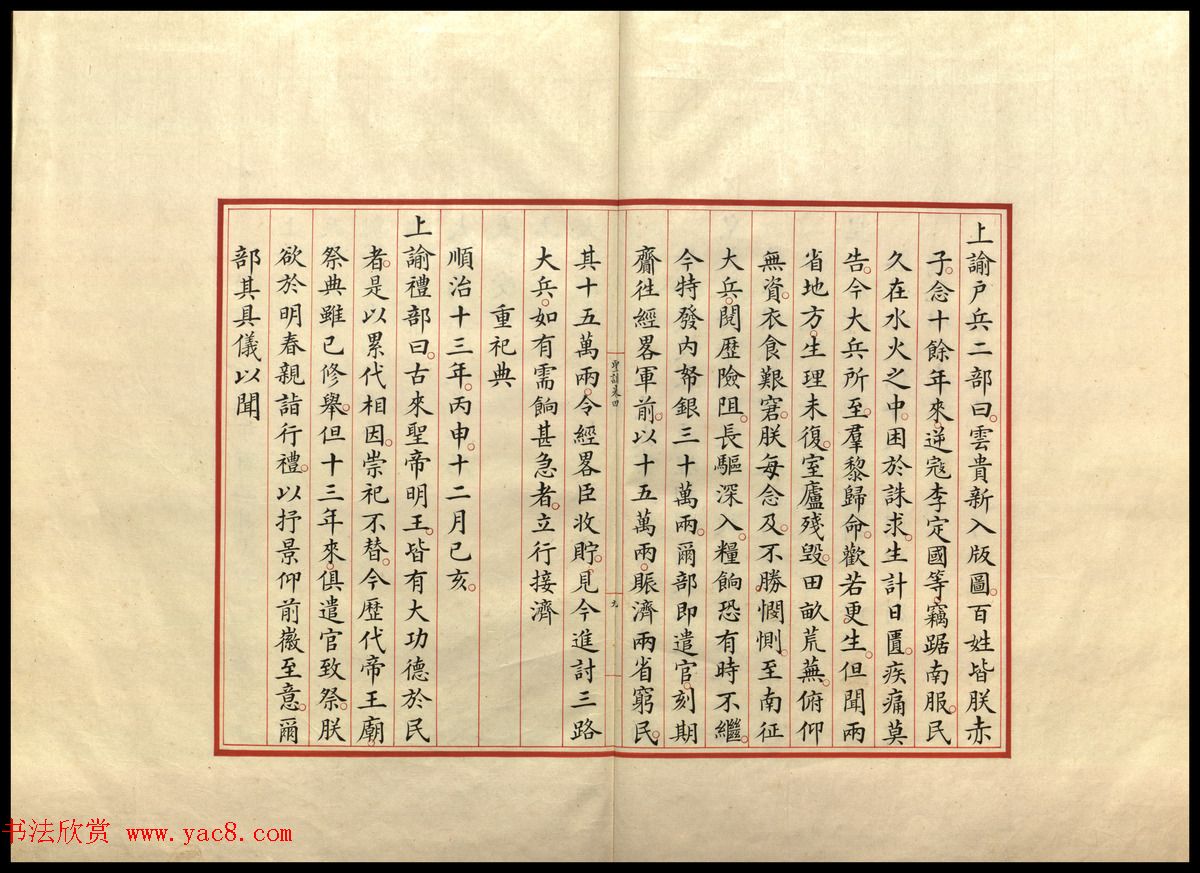 上諭户兵二部曰。雲貴新入版圖。百姓皆朕赤
子。念十餘年來。逆寇李定國等。竊踞南服。民
久在水火之中。困於誅求。生計日匱。疾痛莫
告。今大兵所至。羣黎歸命。歡若更生。但聞兩
省地方。生理未復。室廬殘毀。田畝荒蕪。俯仰
無資。衣食艱窘。朕每念及。不勝憫惻。至南征
大兵。閱歷險阻。長驅深入。糧餉恐有時不繼。
今特發內帑銀三十萬兩。爾部即遣官。刻期
齎徃經畧軍前。以十五萬兩。賑濟兩省窮民。
聖訓卷四
九
其十五萬兩。令經畧臣收貯。見今進討三路
大兵。如有需餉甚急者。立行接濟
重祀典
順治十三年。丙申。十二月己亥。
上諭禮部曰。古來聖帝明王。皆有大功德於民
者。是以累代相因。崇祀不替。今歷代帝王廟。
祭典雖已修舉。但十三年來。俱遣官致祭。朕
欲於明春親詣行禮。以抒景仰前徽至意。爾
部其具儀以聞
书法欣赏 www.yac8.com